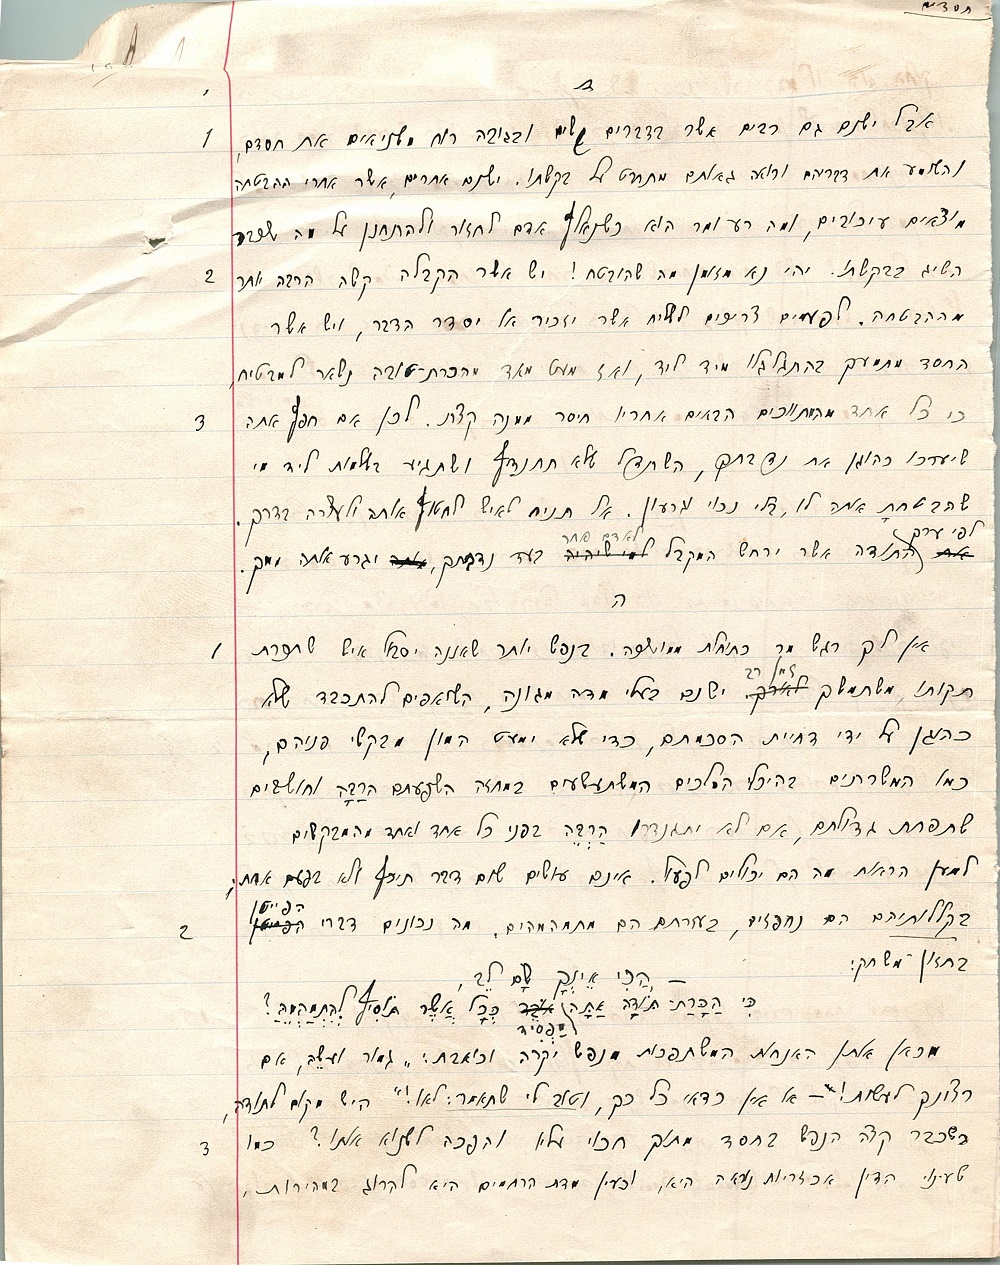 חסדים
ד
1 אבל ישנם גם רבים אשר בדברים קשים ובגובה רוח משניאים את חסדם,
והשומע את דבריהם ורואה גאותם מתחרט על בקשתו. ישנם אחרים, אשר אחרי ההבטחה
מוצאים עיכובים, ומה רע ומר הוא כשנאלץ אדם לחזור ולהתחנן על מה שכבר
2 השיג בבקשתו. יהי נא מזומן מה שהובטח! יש אשר הקבלה קשה הרבה יותר
מההבטחה. לפעמים צריכים לשליח אשר יזכיר או יסדר הדבר, ויש אשר
החסד מתמעך בהתגלגלו מיד ליד, ואז מעט מאד מהכרת-טובה נשאר למבטיח,
3 כי כל אחד מהמתווכים הבאים אחריו חיסר ממנה קצת. לכן אם חפץ אתה
שיעריכו כהוגן את נדבתך, השתדל שלא תתנדף ושתגיע בשלמות ליד מי
שהבטחתָ אותה לו, בלי נכוי וגרעון. אל תניח לאיש לחטוף אותה ולעצרה בדרך.
לפי ערך התודה אשר ירחש המקבל לאדם אחר בעד נדבתך, יגרע אותה ממך.
ה
1 אין לך רגש מר כתוחלת ממושכה. בנפש יותר שאננה יסבול איש שתפרת
תקותו, משתמשך זמן רב. ישנם בעלי מדה מגונה, השואפים להתכבד שלא
כהוגן על ידי דחיית הסכמתם, כדי שלא ימעט המון מבקשי פניהם,
כמו המשרתים בהיכלי המלכים המשתעשעים במחזה השפעתם הַרַבָּה וחושבים
שתפחת גדולתם, אם לא יתגנדרו הַרְבֵּה בפני כל אחד ואחד מהמבקשים
למען הראות מה הם יכולים לפעול. אינם עושים שום דבר תיכף ולא בפעם אחת;
2 בקללותיהם הם נחפזים, בעזרתם הם מתמהמהים. מה נכונים דברי הפייטן
בחזון-משחק:
— הֲכִי אֵינְךָ שָׂם לֵב,
כִּי הַכָּרַת תּוֹדָה אַתָּה מַפְסִיד כְּכָל אֲשֶׁר תּוֹסִיף לְהִתְמַהְמֵהַּ?
מכאן אותן האנחות המשתפכות מנפש יקרה וכואבת: „גמור ועשה, אם
רצונך לעשות!" — או אין כדאי כל כך, וטוב לי שתאמר: לאו!" היש מקום לתודה,
3 כשכבר קצה הנפש בחסד מתוך חכוי עליו והפכה לשנוא אותו? כמו
שעינוי הדין אכזריות נוראה היא, וכעין מדת הרחמים היא להרוג במהירות,